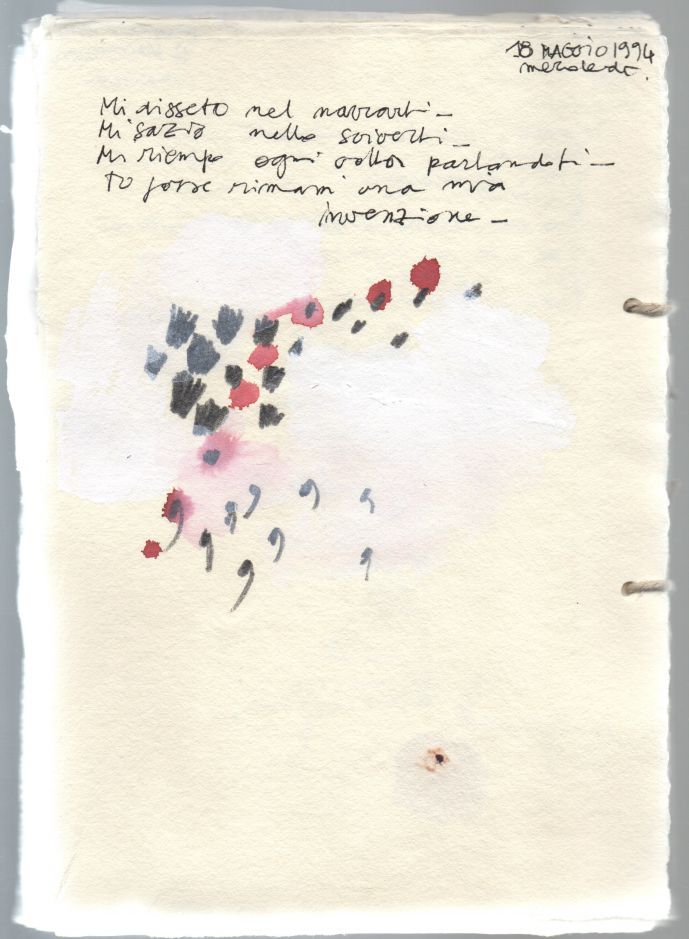 18 MAGGIO 1994
mercoledì.
Mi disseto nel narrarti_
Mi sazio nello scriverti_
Mi riempo ogni volta parlandoti_
Tu forse rimani una mia
invenzione_